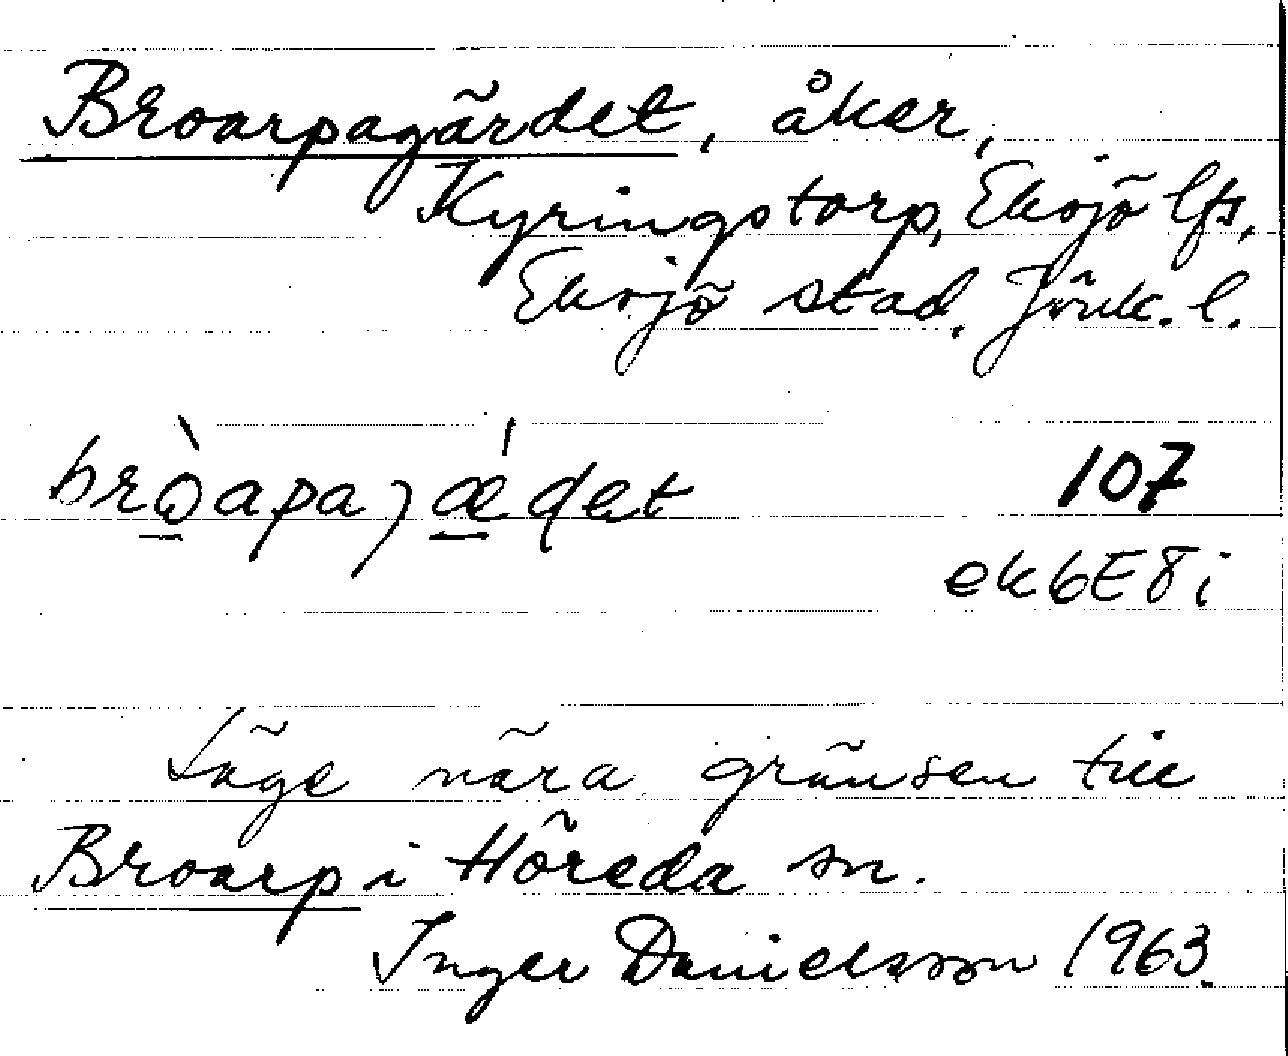 Broarpagärdet, åker,
Kyringstorp, Eksjö lfs,
Eksjö stad. Jönk. l.
bròapajǽdet 107
ek6E8i
Läge nära gränsen till
Broarp i Höreda sn.
Inger Danielsson 1963.